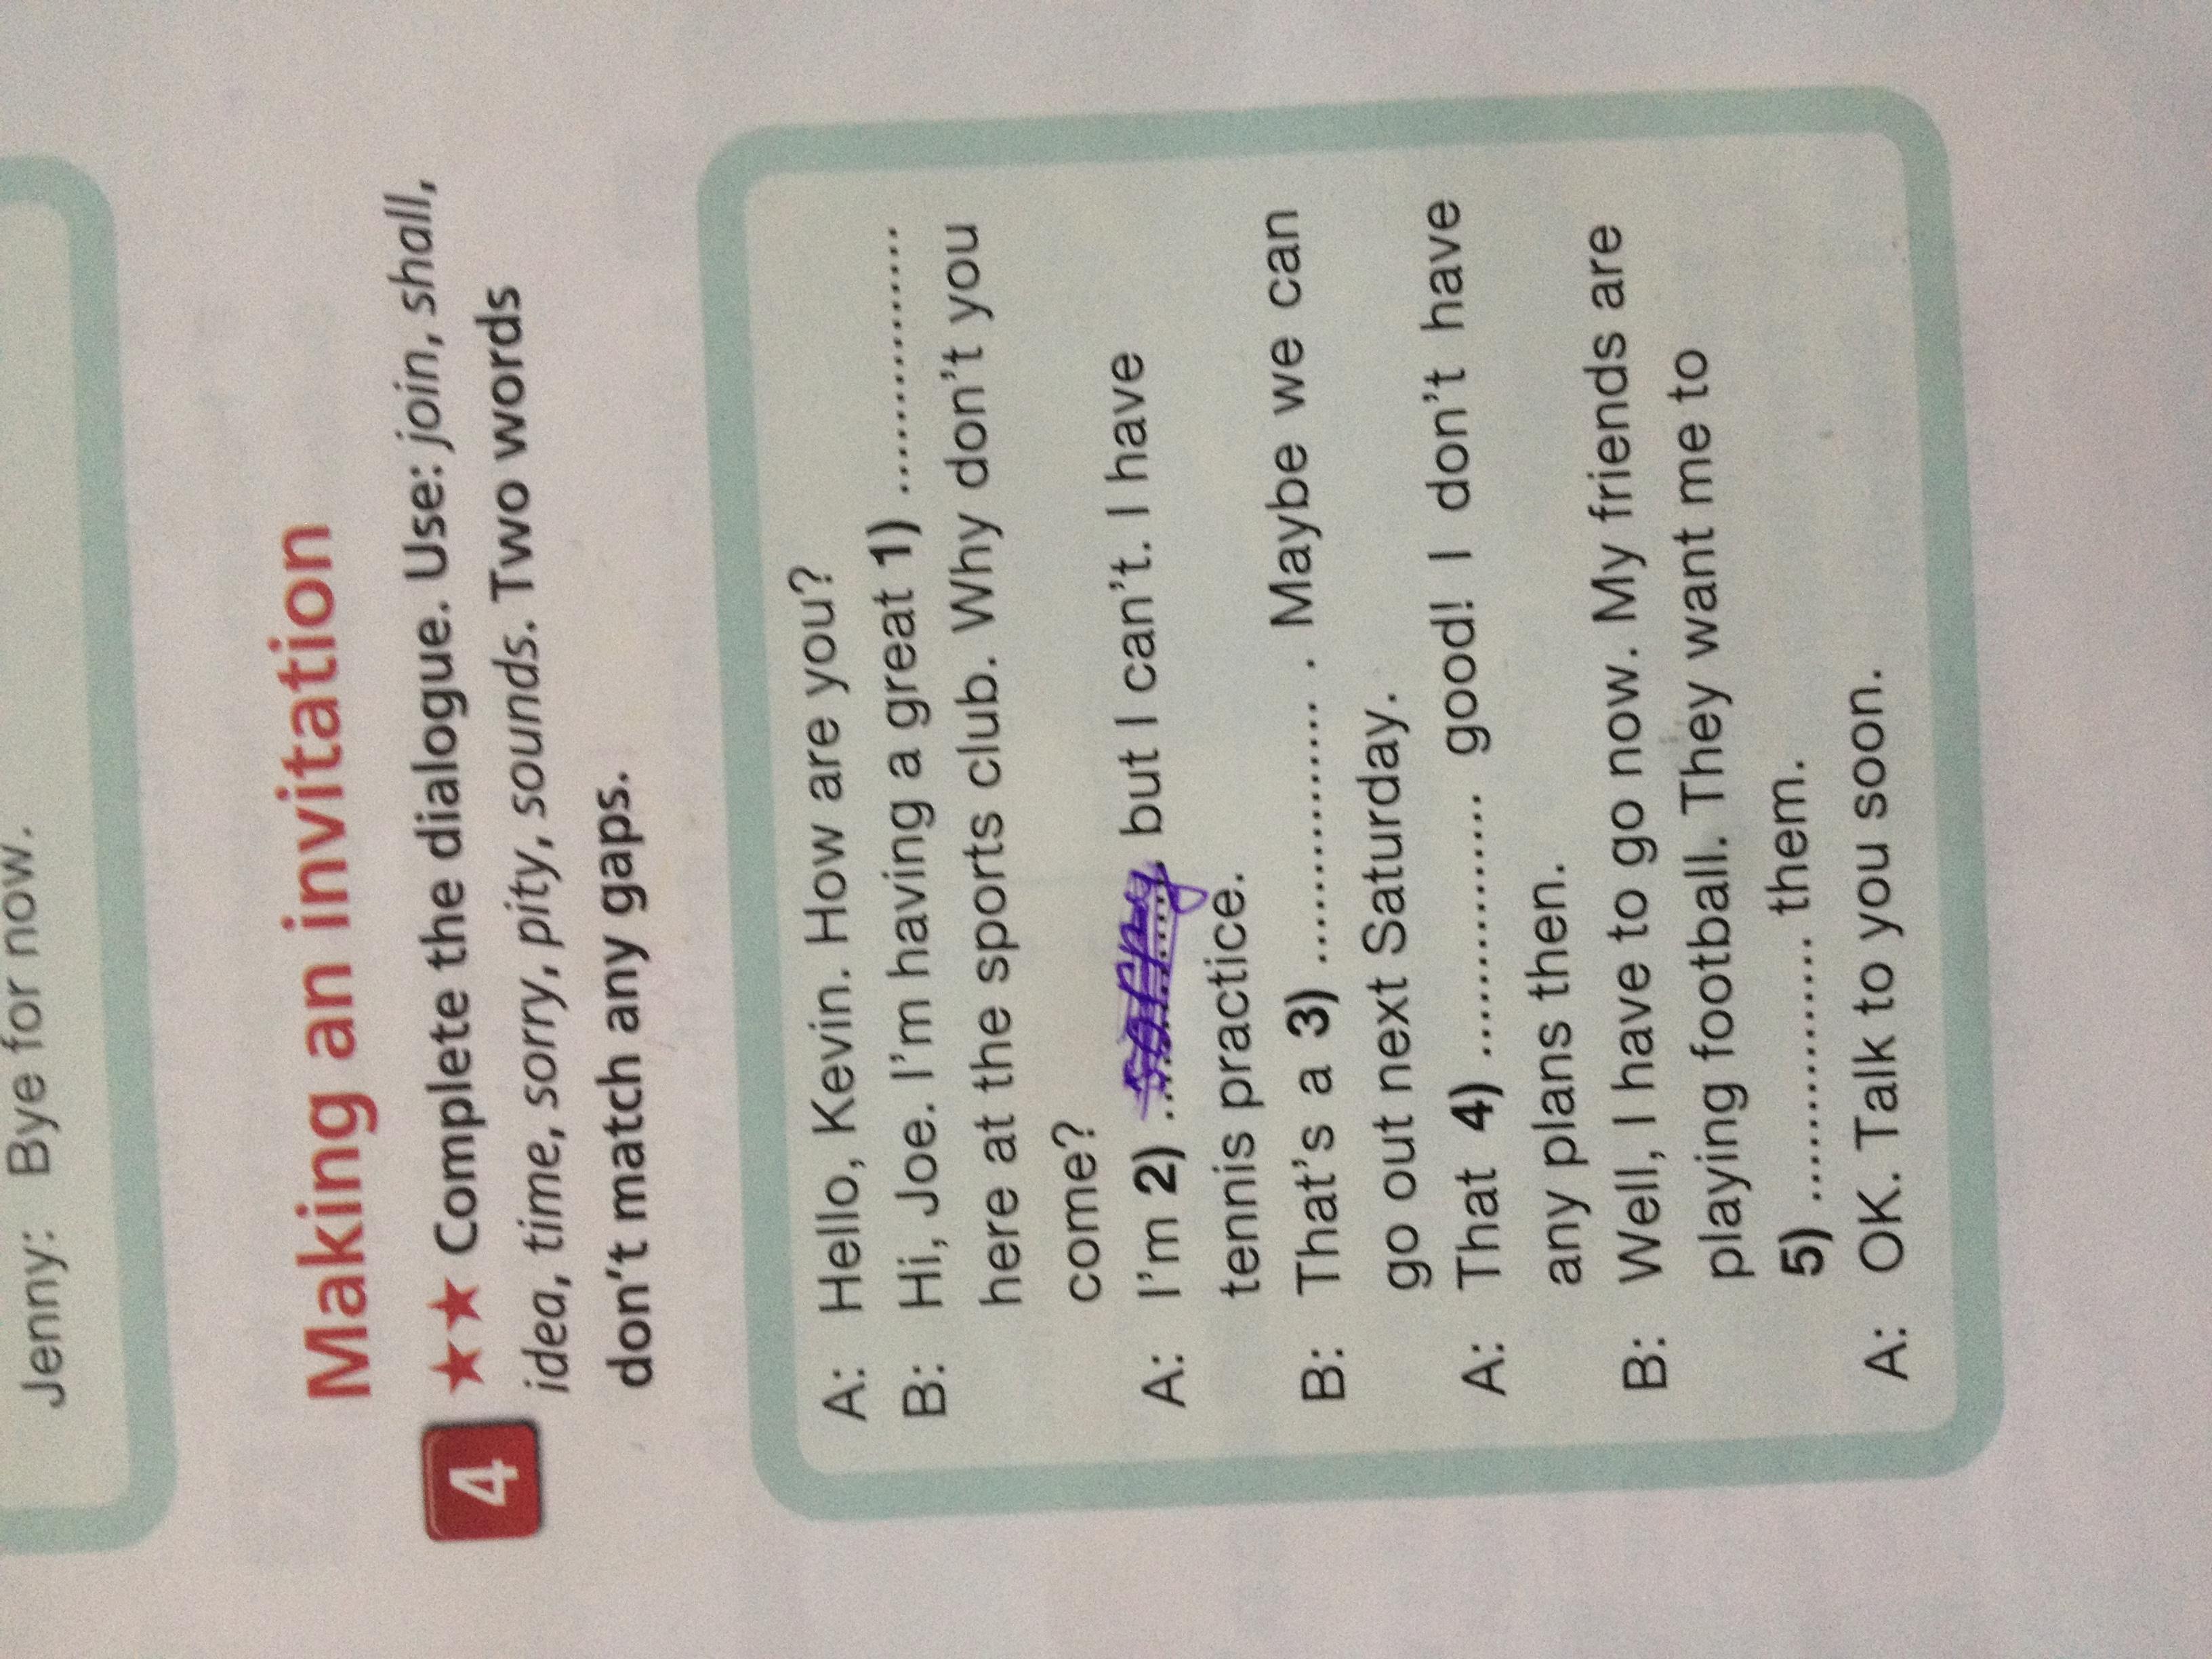 Jenny: Bye for now.
Making an invitation
4 ★★ Complete the dialogue. Use: join, shall,
idea, time, sorry, pity, sounds. Two words
don't match any gaps.
A: Hello, Kevin. How are you?
B: Hi, Joe. I'm having a great 1) ..................
here at the sports club. Why don't you
come?
A: I'm 2) sorry, but I can't. I have
tennis practice.
B: That's a 3) .................. . Maybe we can
go out next Saturday.
A: That 4) .................. good! I don't have
any plans then.
B: Well, I have to go now. My friends are
playing football. They want me to
5) .................. them.
A: OK. Talk to you soon.